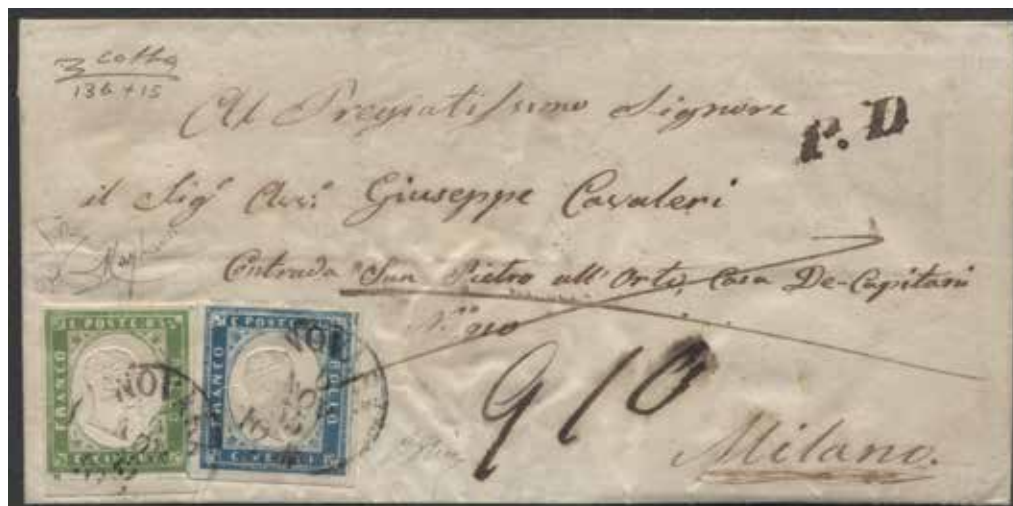 3 cotta
13b + 15
Al Pregiatissimo Signore
P. D
il Sig.r Avv. Giuseppe Cavaleri
Contrada San Pietro all'Orto, Casa De-Capitani
N.°
9/10
Milano.
C. POSTE 
FRANCO
C. POSTE
FRANCO
BOLLO